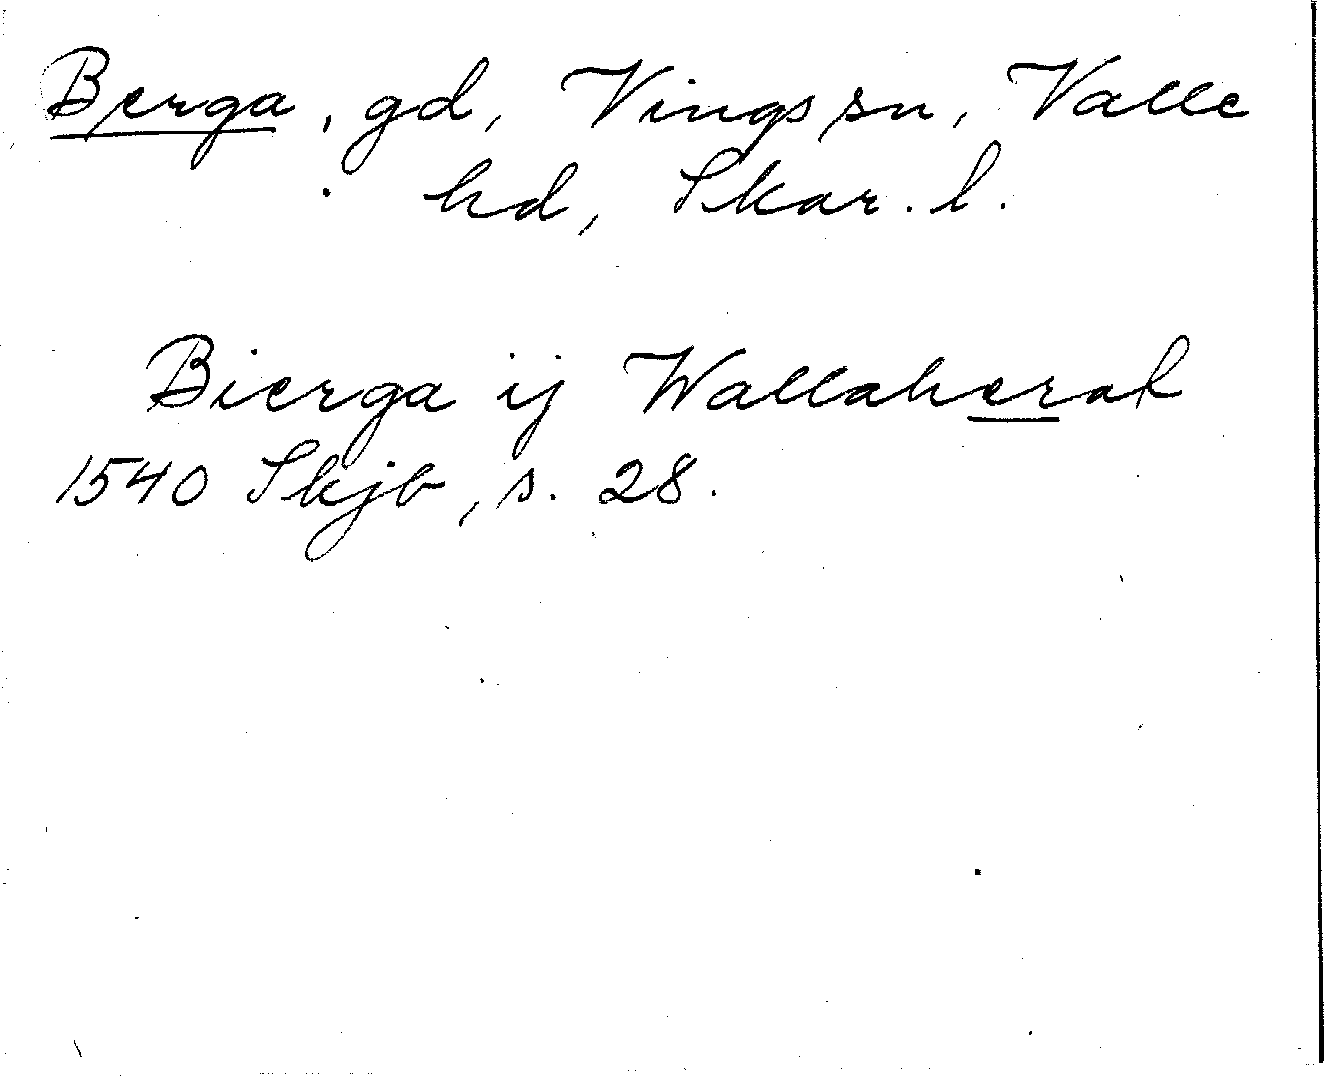 Berga, gd, Vings sn, Valle
hd, Skar. l.
Bierga ij Wallaherad
1540 Skjb, s. 28.